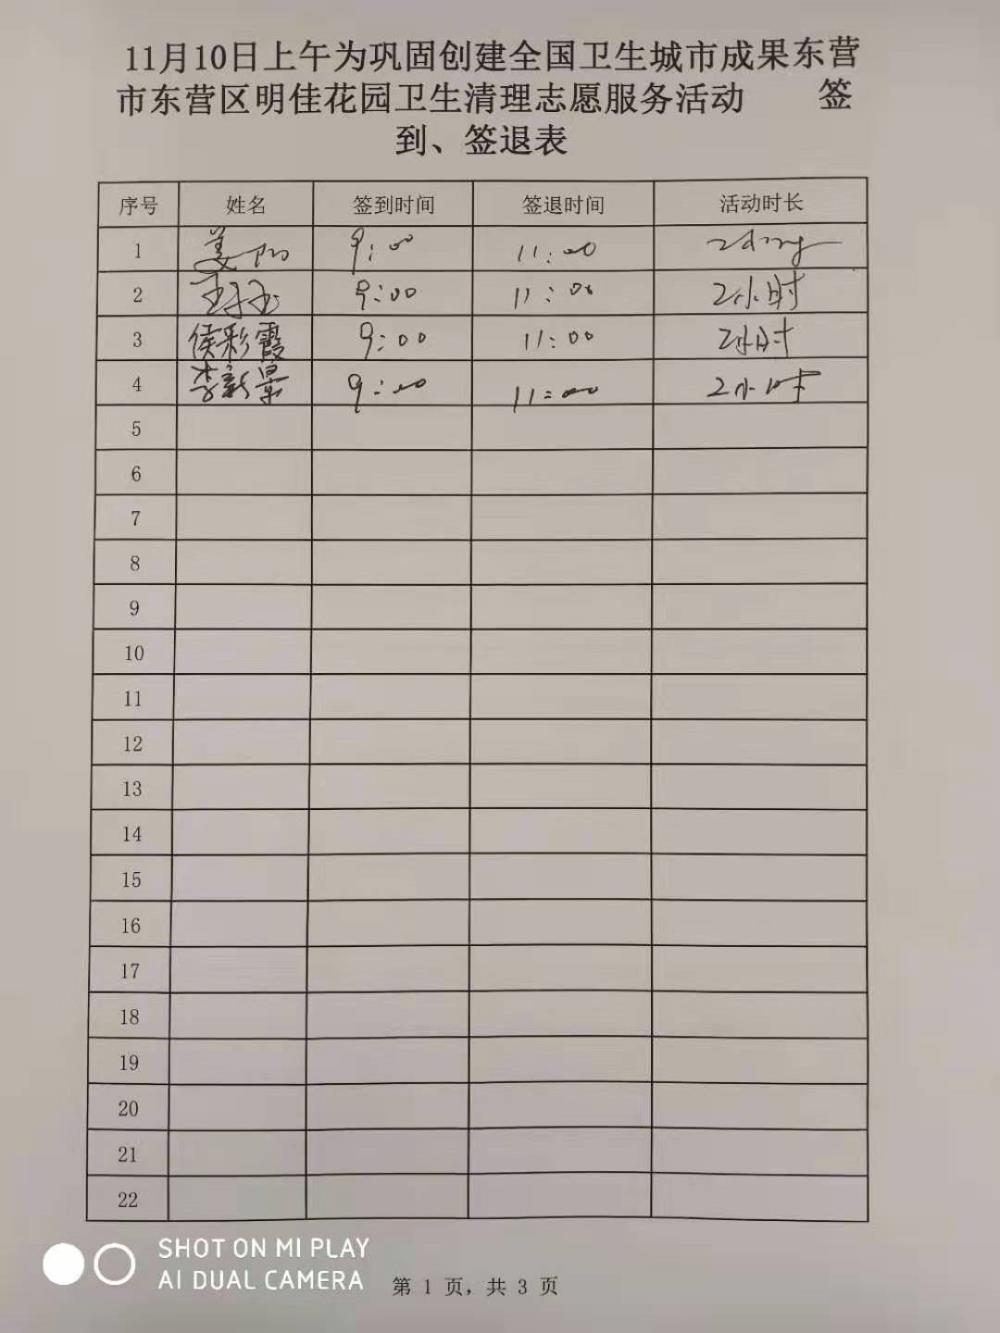 11月10日上午为巩固创建全国卫生城市成果东营
市东营区明佳花园卫生清理志愿服务活动 签
到、签退表
序号 姓名 签到时间 签退时间 活动时长
1 姜 9:00 11:00
2 王 9:00 11:00 2小时
3 侯彩霞 9:00 11:00 2小时
4 李新景 9:00 11:00 2小时
5
6
7
8
9
10
11
12
13
14
15
16
17
18
19
20
21
22
SHOT ON MI PLAY
AI DUAL CAMERA
第 1 页, 共 3 页